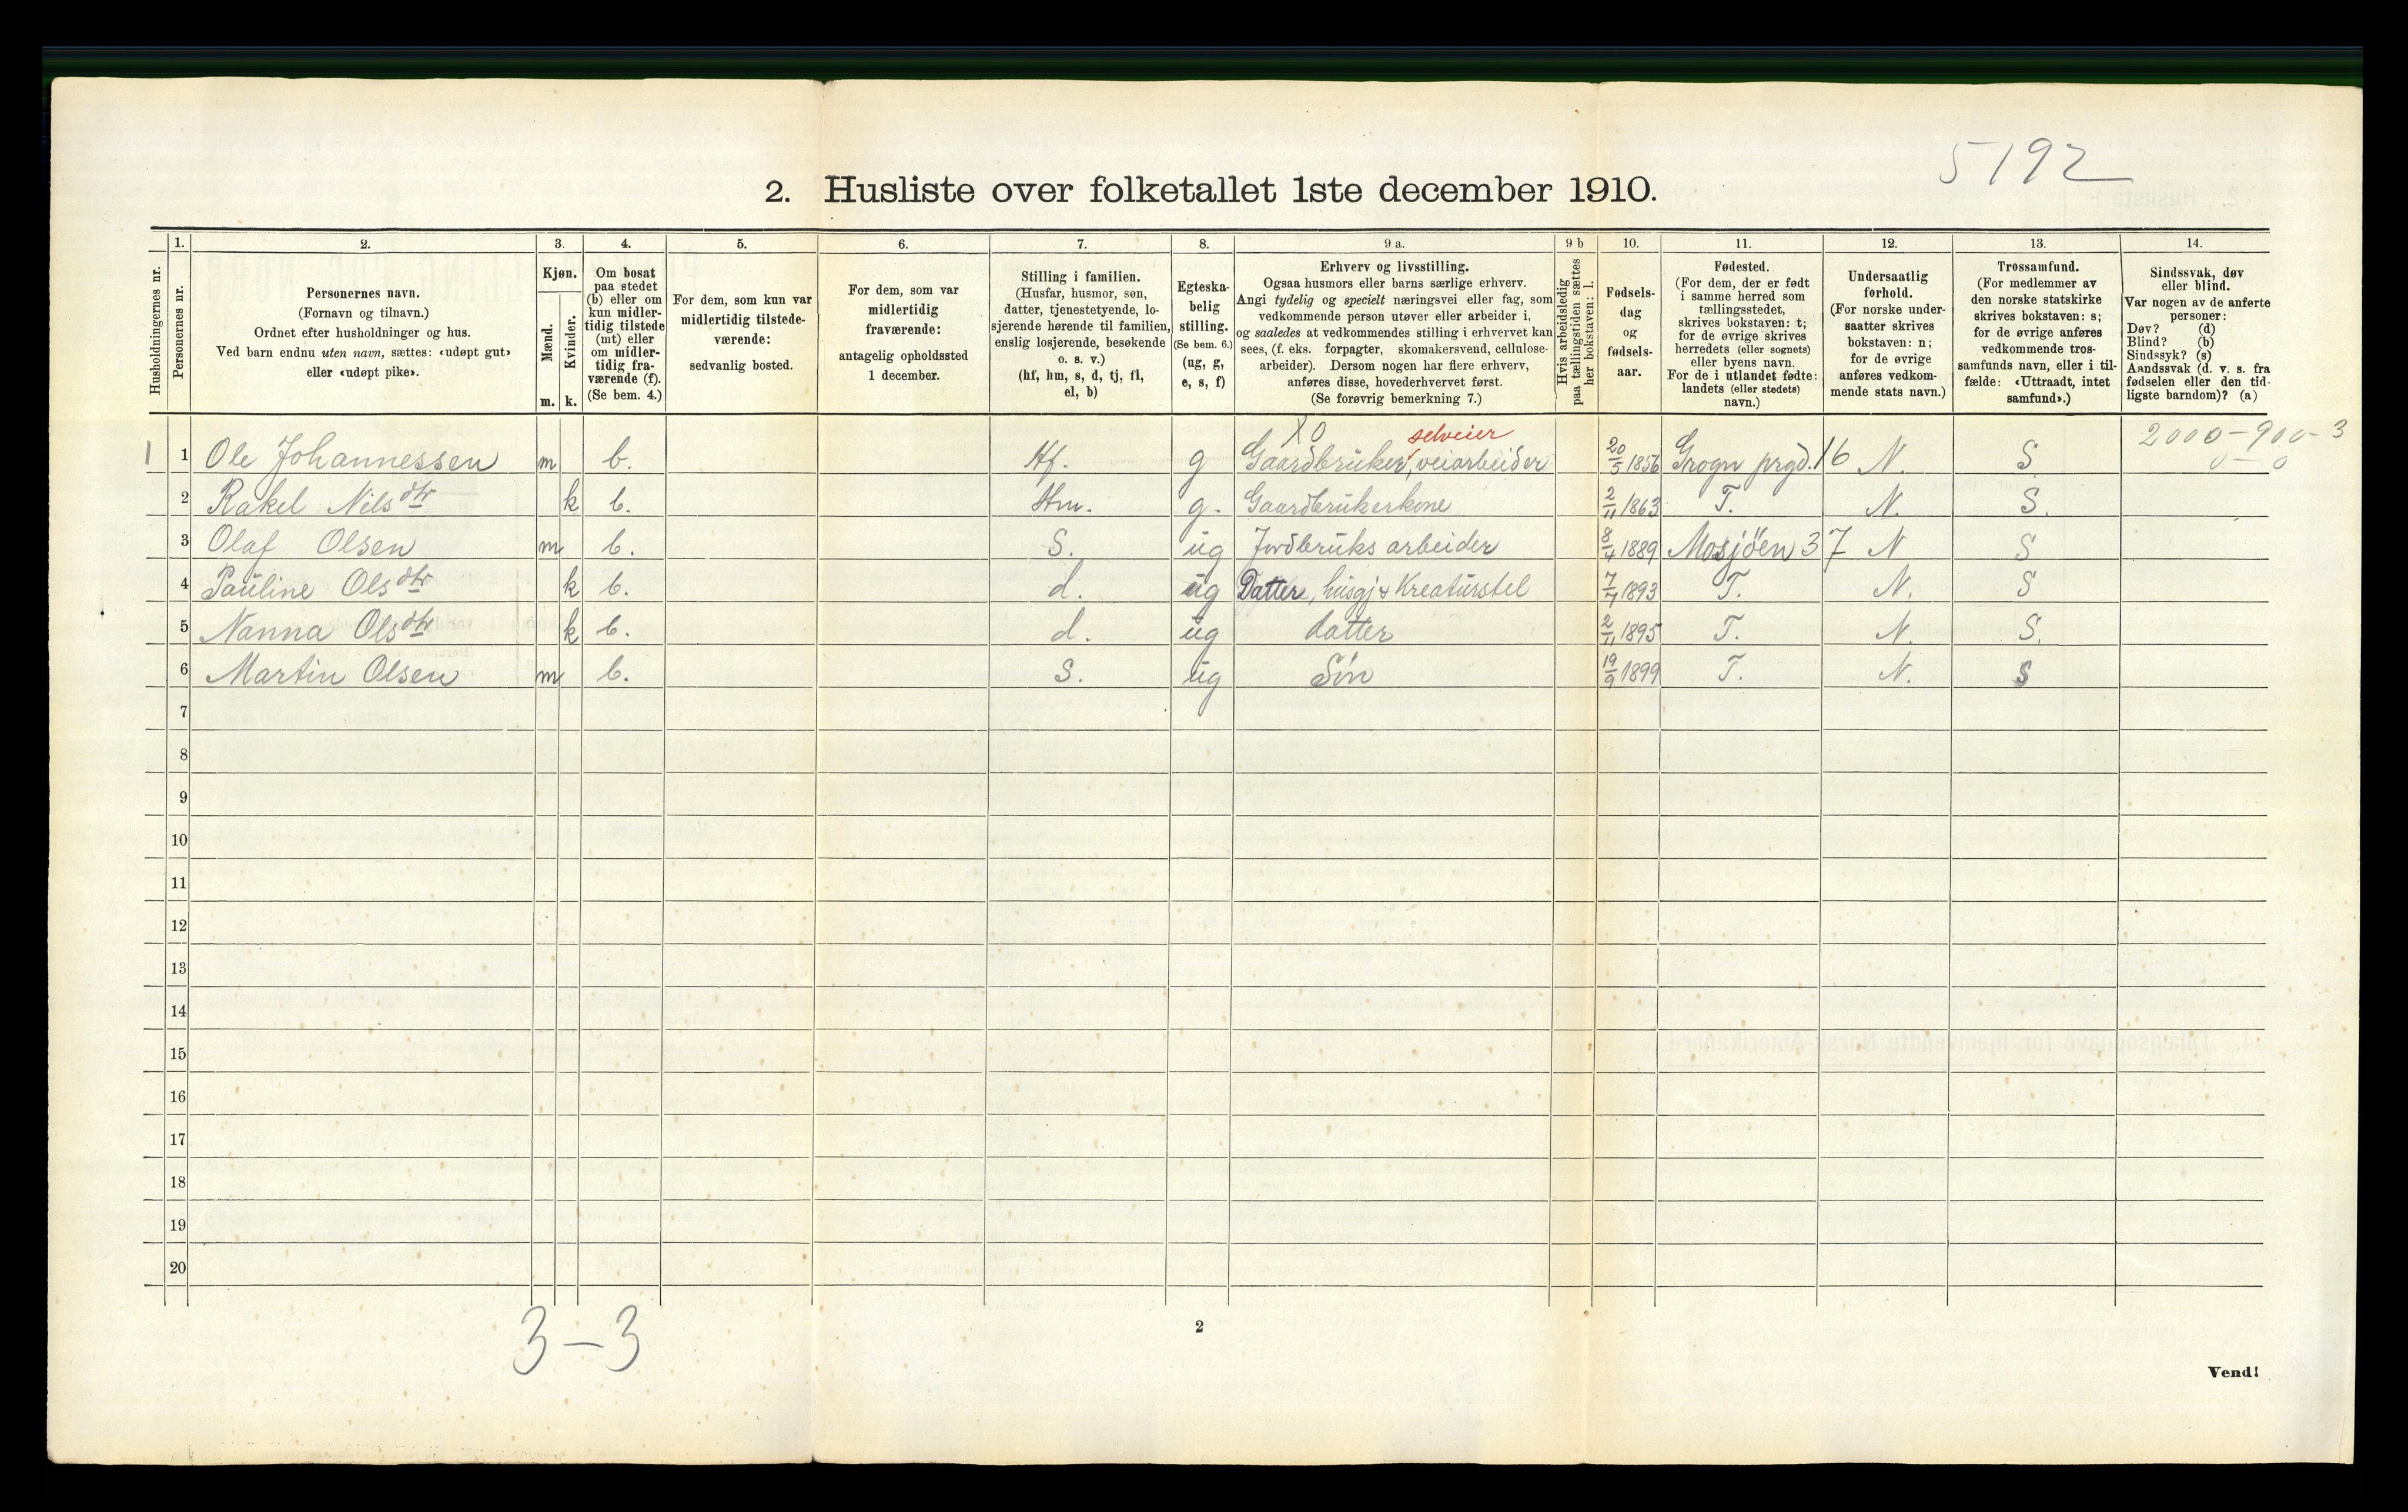 5192
2. Husliste over folketallet 1ste december 1910.
Husholdningernes nr.
1. Personernes nr.
2. Personernes navn. (Fornavn og tilnavn.) Ordnet efter husholdninger og hus. Ved barn endnu uten navn, sættes: «udøpt gut» eller «udøpt pike».
3. Kjøn. Mænd. m. Kvinder. k.
4. Om bosat paa stedet (b) eller om kun midler-tidig tilstede (mt) eller om midler-tidig fra-værende (f). (Se bem. 4.)
5. For dem, som kun var midlertidig tilstede-værende: sedvanlig bosted.
6. For dem, som var midlertidig fraværende: antagelig opholdssted 1 december.
7. Stilling i familien. (Husfar, husmor, søn, datter, tjenestetyende, lo-sjerende hørende til familien, enslig losjerende, besøkende o. s. v.) (hf, hm, s, d, tj, fl, el, b)
8. Egteska-belig stilling. (Se bem. 6.) (ug, g, e, s, f)
9 a. Erhverv og livsstilling. Ogsaa husmors eller barns særlige erhverv. Angi tydelig og specielt næringsvei eller fag, som vedkommende person utøver eller arbeider i, og saaledes at vedkommendes stilling i erhvervet kan sees, (f. eks. forpagter, skomakersvend, cellulose-arbeider). Dersom nogen har flere erhverv, anføres disse, hovederhvervet først. (Se forøvrig bemerkning 7.)
9 b Hvis arbeidsledig paa tællingstiden sættes her bokstaven: l.
10. Fødsels-dag og fødsels-aar.
11. Fødested. (For dem, der er født i samme herred som tællingsstedet, skrives bokstaven: t; for de øvrige skrives herredets (eller sognets) eller byens navn. For de i utlandet fødte: landets (eller stedets) navn.)
12. Undersaatlig forhold. (For norske under-saatter skrives bokstaven: n; for de øvrige anføres vedkom-mende stats navn.)
13. Trossamfund. (For medlemmer av den norske statskirke skrives bokstaven: s; for de øvrige anføres vedkommende tros-samfunds navn, eller i til-fælde: «Uttraadt, intet samfund».)
14. Sindssvak, døv eller blind. Var nogen av de anførte personer: Døv? (d) Blind? (b) Sindssyk? (s) Aandssvak (d. v. s. fra fødselen eller den tid-ligste barndom)? (a)
X0 selveier 2000-900-3
1 1 Ole Johannessen m b. Hf. g Gaardbruker, veiarbeider 20/5 1856 Grogn prgd. 16 N. S 0-0
2 Rakel Nilsdtr k b. Hm. g. Gaardbrukerkone 2/11 1863 T. N. S.
3 Olaf Olsen m b. S. ug Jordbruks arbeider 8/4 1889 Mosjöen 37 N S
4 Pauline Olsdtr k b. d. ug Datter, husgj & Kreaturstel 7/7 1893 T. N. S
5 Nanna Olsdtr k b. d. ug datter 2/11 1895 T. N. S.
6 Martin Olsen m b. S. ug Sön 19/9 1899 T. N. S
7
8
9
10
11
12
13
14
15
16
17
18
19
20
3-3
2
Vend!